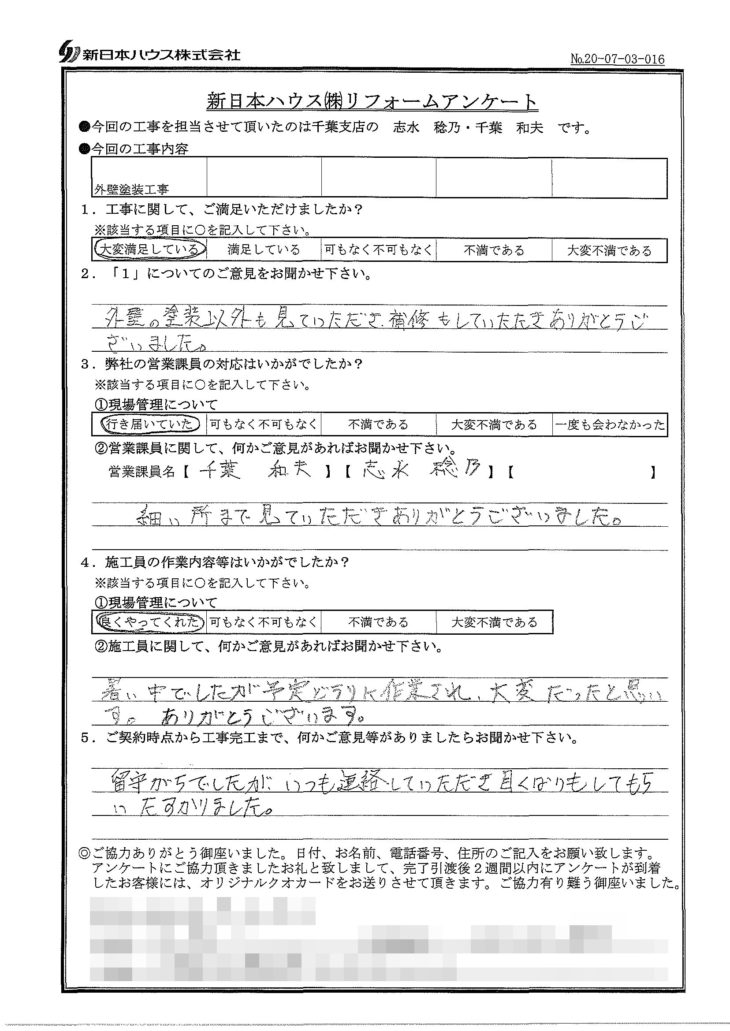 新日本ハウス株式会社
№20-07-03-016
新日本ハウス㈱リフォームアンケート
●今回の工事を担当させて頂いたのは千葉支店の 志水 稔乃・千葉 和夫 です。
●今回の工事内容
外壁塗装工事
1．工事に関して、ご満足いただけましたか？
※該当する項目に○を記入して下さい。
大変満足している 満足している 可もなく不可もなく 不満である 大変不満である
2．「1」についてのご意見をお聞かせ下さい。
外壁の塗装以外も見ていただき、補修もしていただきありがとうご
ざいました。
3．弊社の営業課員の対応はいかがでしたか？
※該当する項目に○を記入して下さい。
①現場管理について
行き届いていた 可もなく不可もなく 不満である 大変不満である 一度も会わなかった
②営業課員に関して、何かご意見があればお聞かせ下さい。
営業課員名【 千葉 和夫 】【 志水 稔乃 】【 】
細い所まで見ていただきありがとうございました。
4．施工員の作業内容等はいかがでしたか？
※該当する項目に○を記入して下さい。
①現場管理について
良くやってくれた 可もなく不可もなく 不満である 大変不満である
②施工員に関して、何かご意見があればお聞かせ下さい。
暑い中でしたが予定どうりに作業され、大変だったと思い
す。ありがとうございます。
5．ご契約時点から工事完工まで、何かご意見等がありましたらお聞かせ下さい。
留守がちでしたが、いつも連絡していただき
いたすかりました。
◎ご協力ありがとう御座いました。日付、お名前、電話番号、住所のご記入をお願い致します。
アンケートにご協力頂きましたお礼と致しまして、完了引渡後2週間以内にアンケートが到着
したお客様には、オリジナルクオカードをお送りさせて頂きます。ご協力有り難う御座いました。